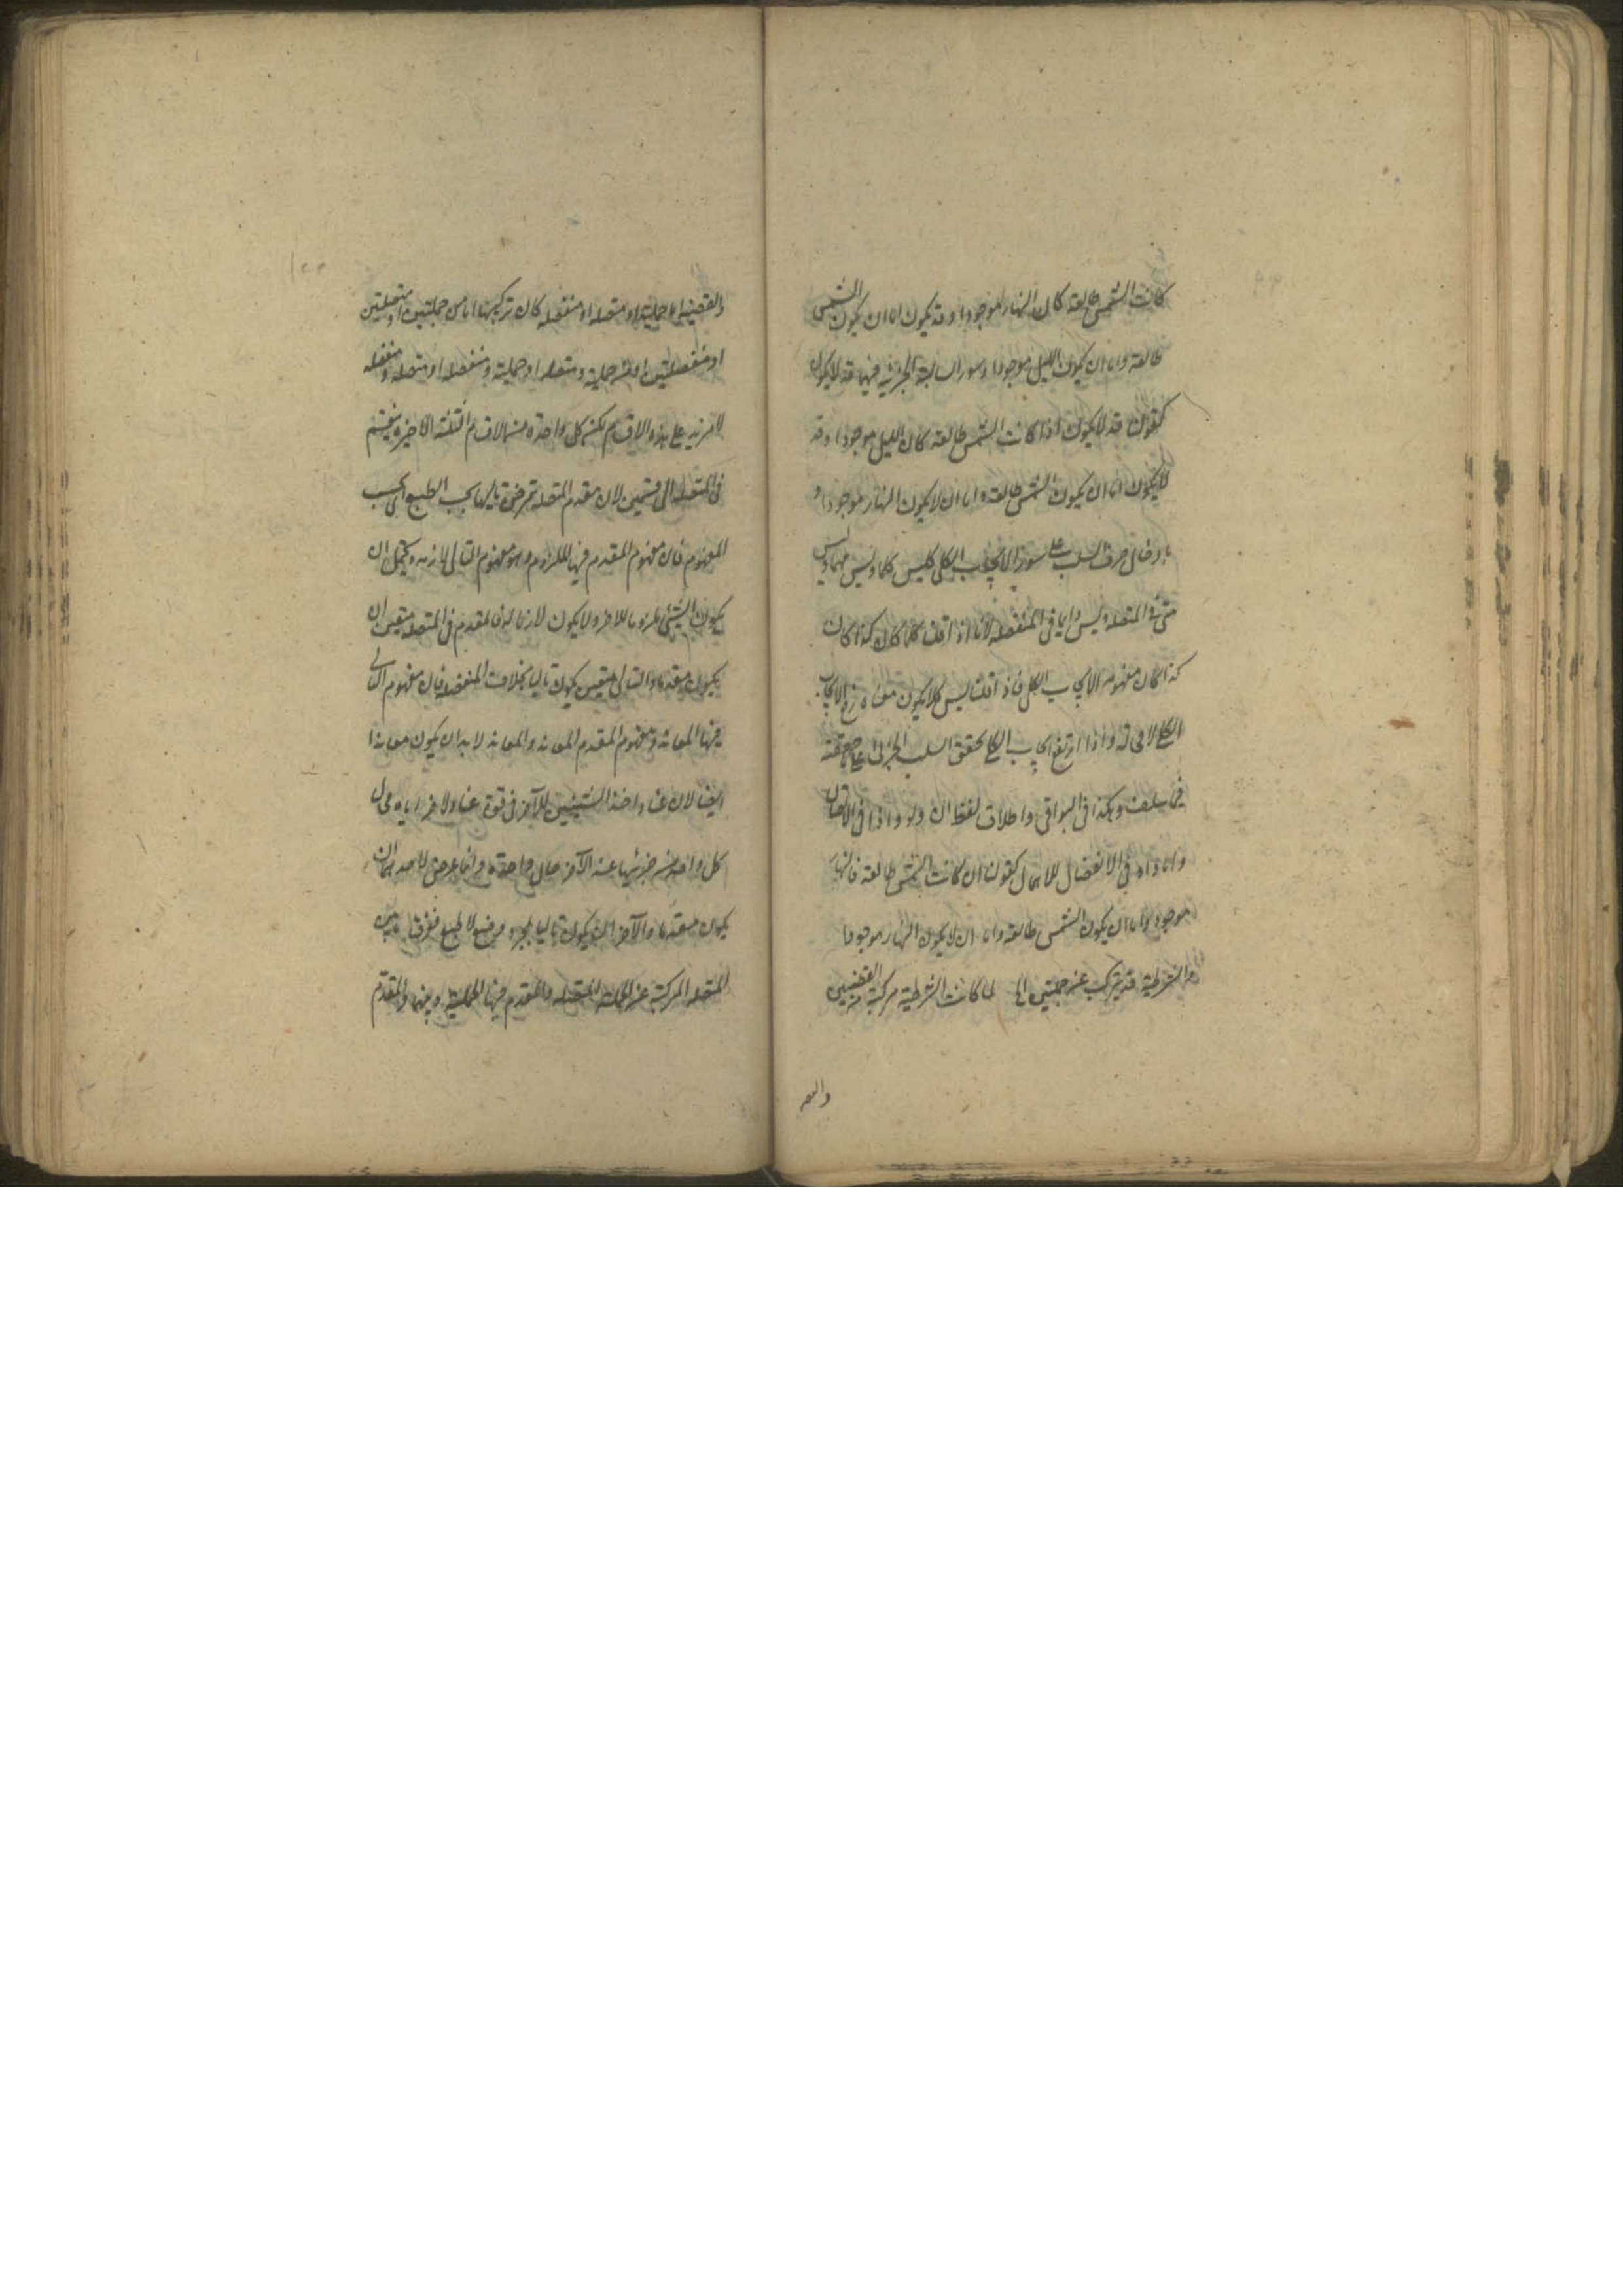 كانت الشمس طالعة كان النهار موجودا وقد يكون اما ان يكون الشمس
طالعة واما ان يكون الليل موجودا وسور السالبة الجزئية فيهما قد لا يكون
كقولنا قد لا يكون اذا كانت الشمس طالعة كان الليل موجودا وقد
لا يكون اما ان يكون الشمس طالعة واما ان لا يكون النهار موجودا و
بادخال حرف السلب على سور الايجاب الكلي كليس كلما وليس مهما وليس
متى في المتصلة وليس دايما في المنفصلة لانا اذا قلنا كلما كان كذا كان
كذا كان مفهومه الايجاب الكلي فاذا قلنا ليس كلما يكون معناه رفع الايجاب
الكلي لا محالة واذا ارتفع الايجاب الكلي تحقق السلب الجزئي على ما حققته
فيما سلف وهكذا في البواقي واطلاق لفظ ان ولو واذا في الاتصال
واما واو في الانفصال للاهمال كقولنا ان كانت الشمس طالعة فالنهار
موجود واما ان يكون الشمس طالعة واما ان لا يكون النهار موجودا
والشرطية قد يتركب عن حمليتين الى لما كانت الشرطية مركبة من القضيتين
والقضـ
والقضية اما حملية او متصلة او منفصلة كان تركيبها اما من حمليتين او متصلتين
او منفصلتين او من حملية ومتصلة او حملية ومنفصلة او متصلة ومنفصلة
لا مزيد على هذه الاقسام لكن كل واحدة من الاقسام الثلثة الاخيرة ينقسم
في المتصلة الى قسمين لان مقدم المتصلة متميز عن تاليها بحسب الطبع اي بحسب
المفهوم فان مفهوم المقدم فيها الملزوم ومفهوم التالي اللازم ويحتمل ان
يكون الشيء ملزوما للاخر ولا يكون لازما له فالمقدم في المتصلة متعين بان
يكون مقدما والتالي متعين بان يكون تاليا بخلاف المنفصلة فان مفهوم التالي
فيها المعاند ومفهوم المقدم المعاند والمعاند لا بد ان يكون معاندا
ايضا لان عناد احد الشيئين للاخر في قوة عناد الاخر اياه فحال
كل واحد من جزئيها عند الاخر حال واحدة وانما عرض لاحدهما ان
يكون مقدما والاخر ان يكون تاليا بمجرد الوضع لا الطبع ففرق ما بين
المتصلة المركبة عن الحملية والمتصلة والمقدم فيها الحملية وبينها والمقدم